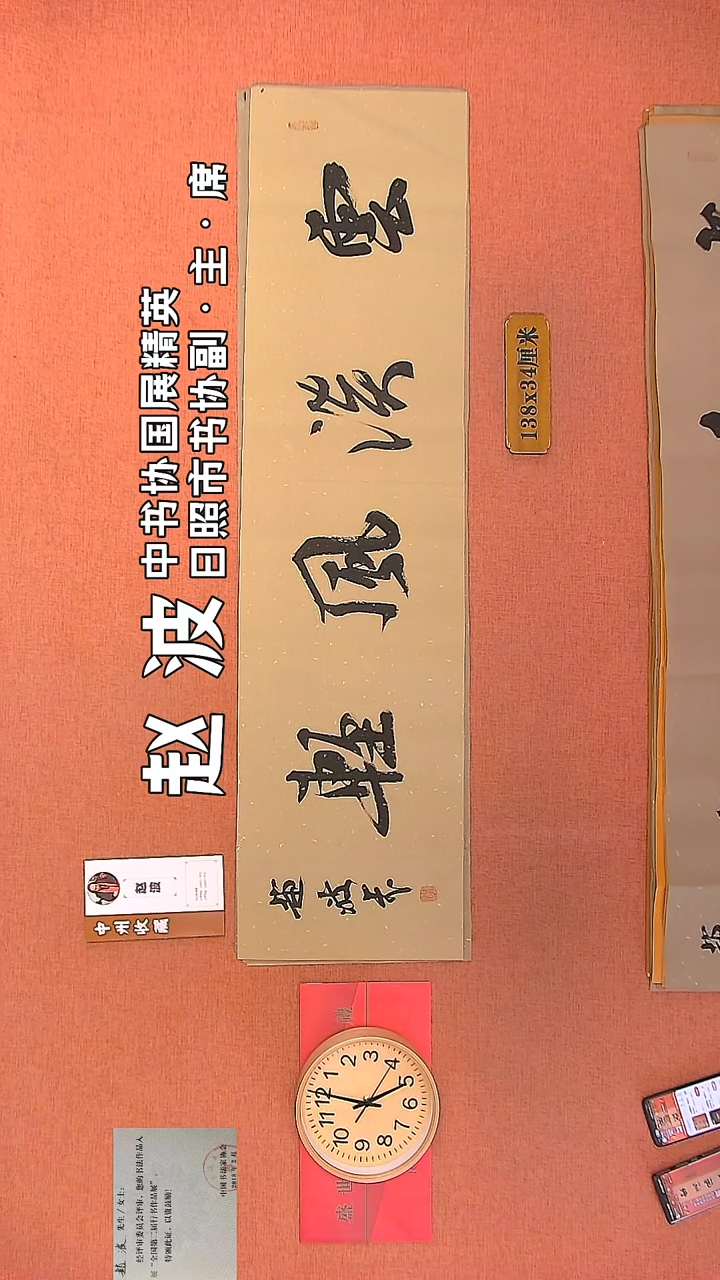 赵波
中书协国展精英
日照市书协副·主·席
雲淡風輕
138x34厘米
赵波
中州收藏
盛世
禮
12
1
2
3
4
5
6
7
8
9
10
11
赵波 先生/女士:
经评审委员会评审,您的书法作品入
展“全国第二届行书作品展”。
特颁此证,以资鼓励!
中国书法家协会